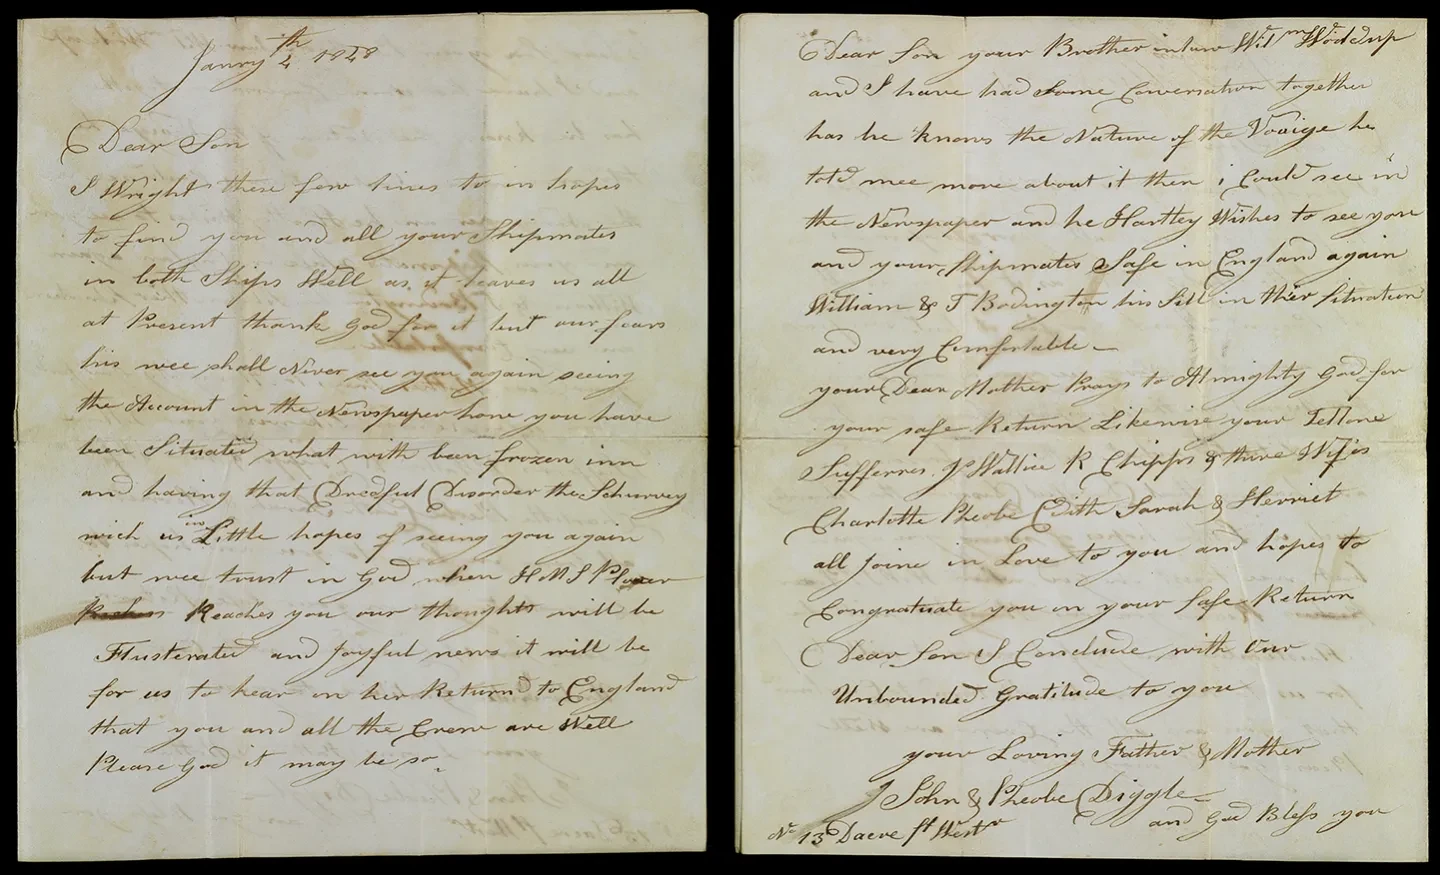 Janry 4th 1848
Dear Son
I Wright these few lines to in hopes
to find you and all your Shipmates
in both Ships Well as it leaves us all
at Present thank God for it but our fears
his wee shall Never see you again seeing
the Account in the Newspaper how you have
been Situated what with been frozen inn
and having that Dredful Disorder the Schurvey
wich is in Little hopes of seeing you again
but wee trust in God when H M S Plover
Reaches you our thoughts will be
Flusterated and Joyful news it will be
for us to hear on her Return to England
that you and all the Crew are Well
Please God it may be so
Dear Son your Brother inlaw Wilm Woddup
and I have had Some Conversation together
has he knows the Nature of the Vouige he
told mee more about it then i Could see in
the Newspaper and he Hartley Wishes to see you
and your Shipmates Safe in England again
William & T Bodington his Sill in thier Situation
and very Comfortable
your Dear Mother Prays to Almighty God for
your safe Return Likewise your Fellow
Sufferres J Wallice R Chipps & thire Wifes
Charlotte Pheobe Edith Sarah & Herriet
all Joine in Love to you and hopes to
Congratuate you on your Safe Return
Dear Son I Conclude with Our
Unbounded Gratitude to you
your Loving Father & Mother
John & Pheobe Diggle
and God Bless you
No 13 Dacre St Westr